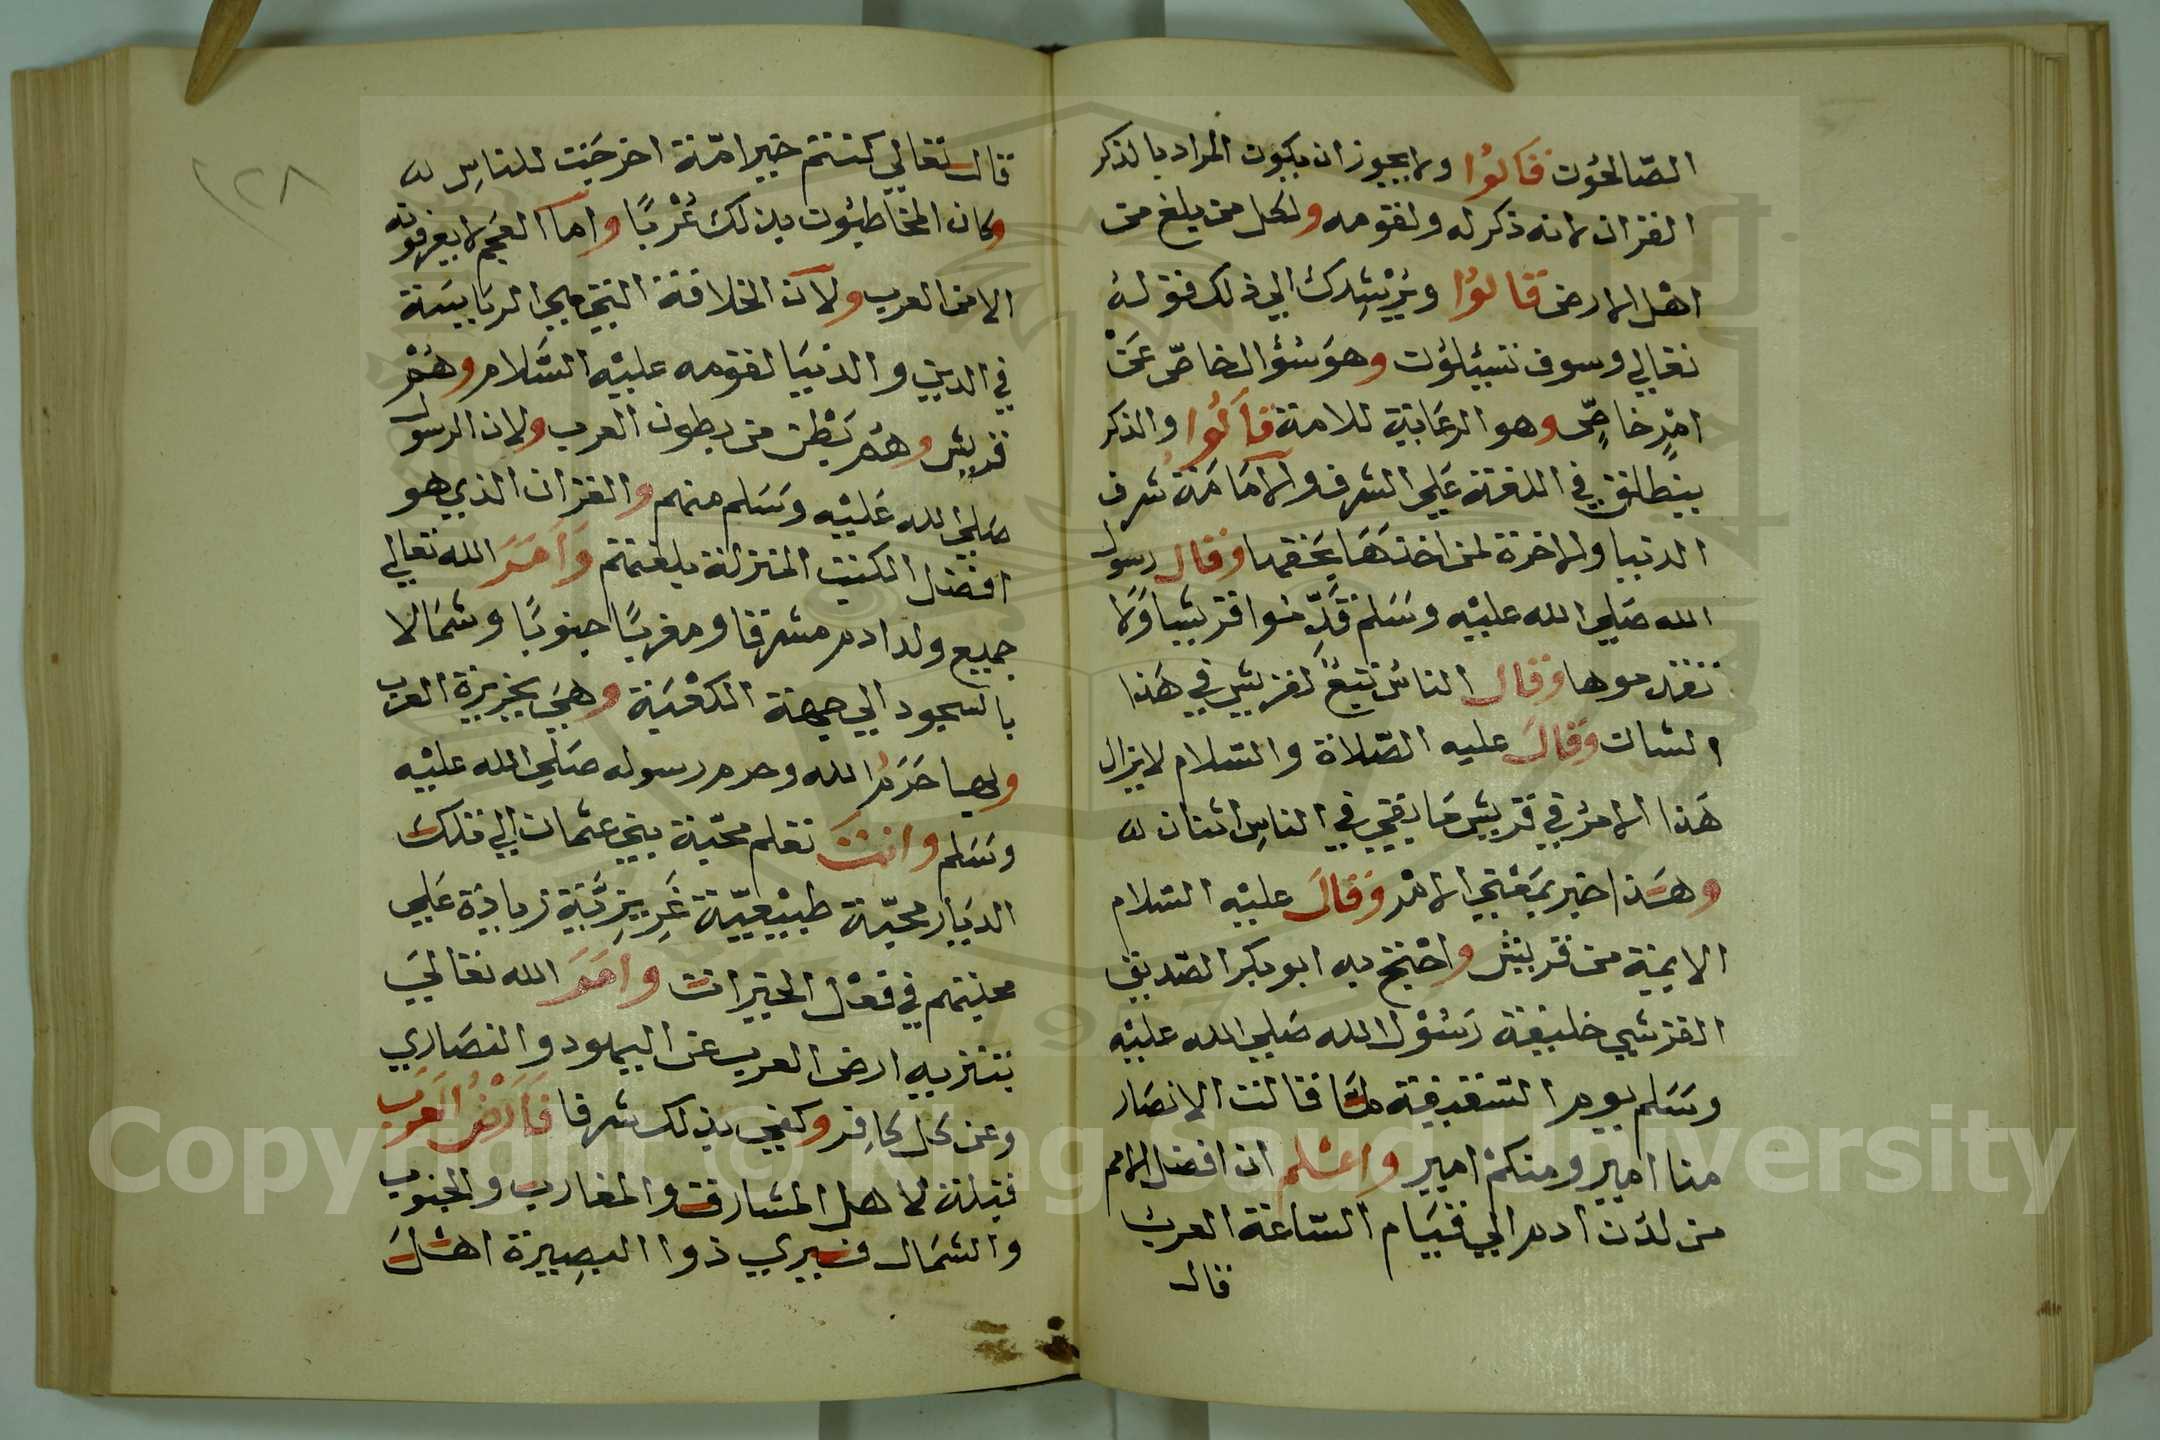 الصّالحُون قالوُا ولا يجوز ان يكون المراد بالذكر
القران لانه ذكر له ولقومه ولكل من يلغ من
اهْل الارض قالوُا ويُرْشِدك الي ذلك قولهُ
تعالي وسوف تسْئلون وهوَ سُؤال خاصّ عَنْ
امْرٍ خاصٍّ وهو الرعَاية للامة قَالُوا والذكر
ينطلق في اللغة عَلي الشرف والامَامَة شرف
الدنيا والاخرة لمن اخذهَا بحَقها وَقال رسول
الله صَلي الله عليْه وسَلم قَدِّموا قريشا وَلا
تقدموها وَقال الناسُ تبَعٌ لقريش في هَذا
الشان وَقالَ عليه الصّلاة والسّلام لايزال
هَذا الامرُ في قريش مَا بقي في الناسِ اثنان
وهَذا خبر بمَعْني الامْر وَقالَ عليْه السّلام
الايمة من قريْش واحْتج به ابو بكر الصّديق
القرشي خليفة رَسُوْل الله صَلي الله عليْه
وسَلم يوم السّقيفة لمّا قالت الانصَار
منا اميْر ومنكمْ امير واعْلم ان افضل الامم
من لدُن ادم الي قيَام السّاعَة العرب
قال
قال تعالي كنتم خير امّة اخرجَت للناسِ
وكان المخاطبُون بذلك عُرْبًا وامَا العَجم لا يعرفونه
الا من العرب ولاَن الخلافة التي هي الريَاسَة
في الدين والدنيَا لقومه عليْه السَّلام وهُمْ
قريش وهُم بَطْن من بطون العرب ولان الرسول
صَلي الله عَليْه وسَلم منهم والقران الذي هو
افضل الكتب المنزلة بلغتهم وَاَمَرَ الله تعالي
جميع ولد ادم مشرقا ومغربًا جنوبًا وشمَالا
بالسجود الي جهة الكعْبَة وهيَ بجزيرة العرب
وبها حَرَمُ الله وحرم رسوله صَلي الله عليْه
وسَلم وانتَ تعلم محبّة بني عثمان الي تلك
الديَار محبّة طبيْعيّة غَرِيزِيَّة زيادَة عَلي
محبتهم في فعْل الخيرات وامَرَ الله تعَاليَ
بتنزيه ارض العرب عن اليهود والنصَاري
وعن كل كافِر وكفي بذلك شرفا فَاَرْضُ العَرَب
قبلة لاهل المشارق والمغارب والجنوب
والشمَال فسيري ذوا البصِيرة اهْلَ
١٢٨
Copyright © King Saud University